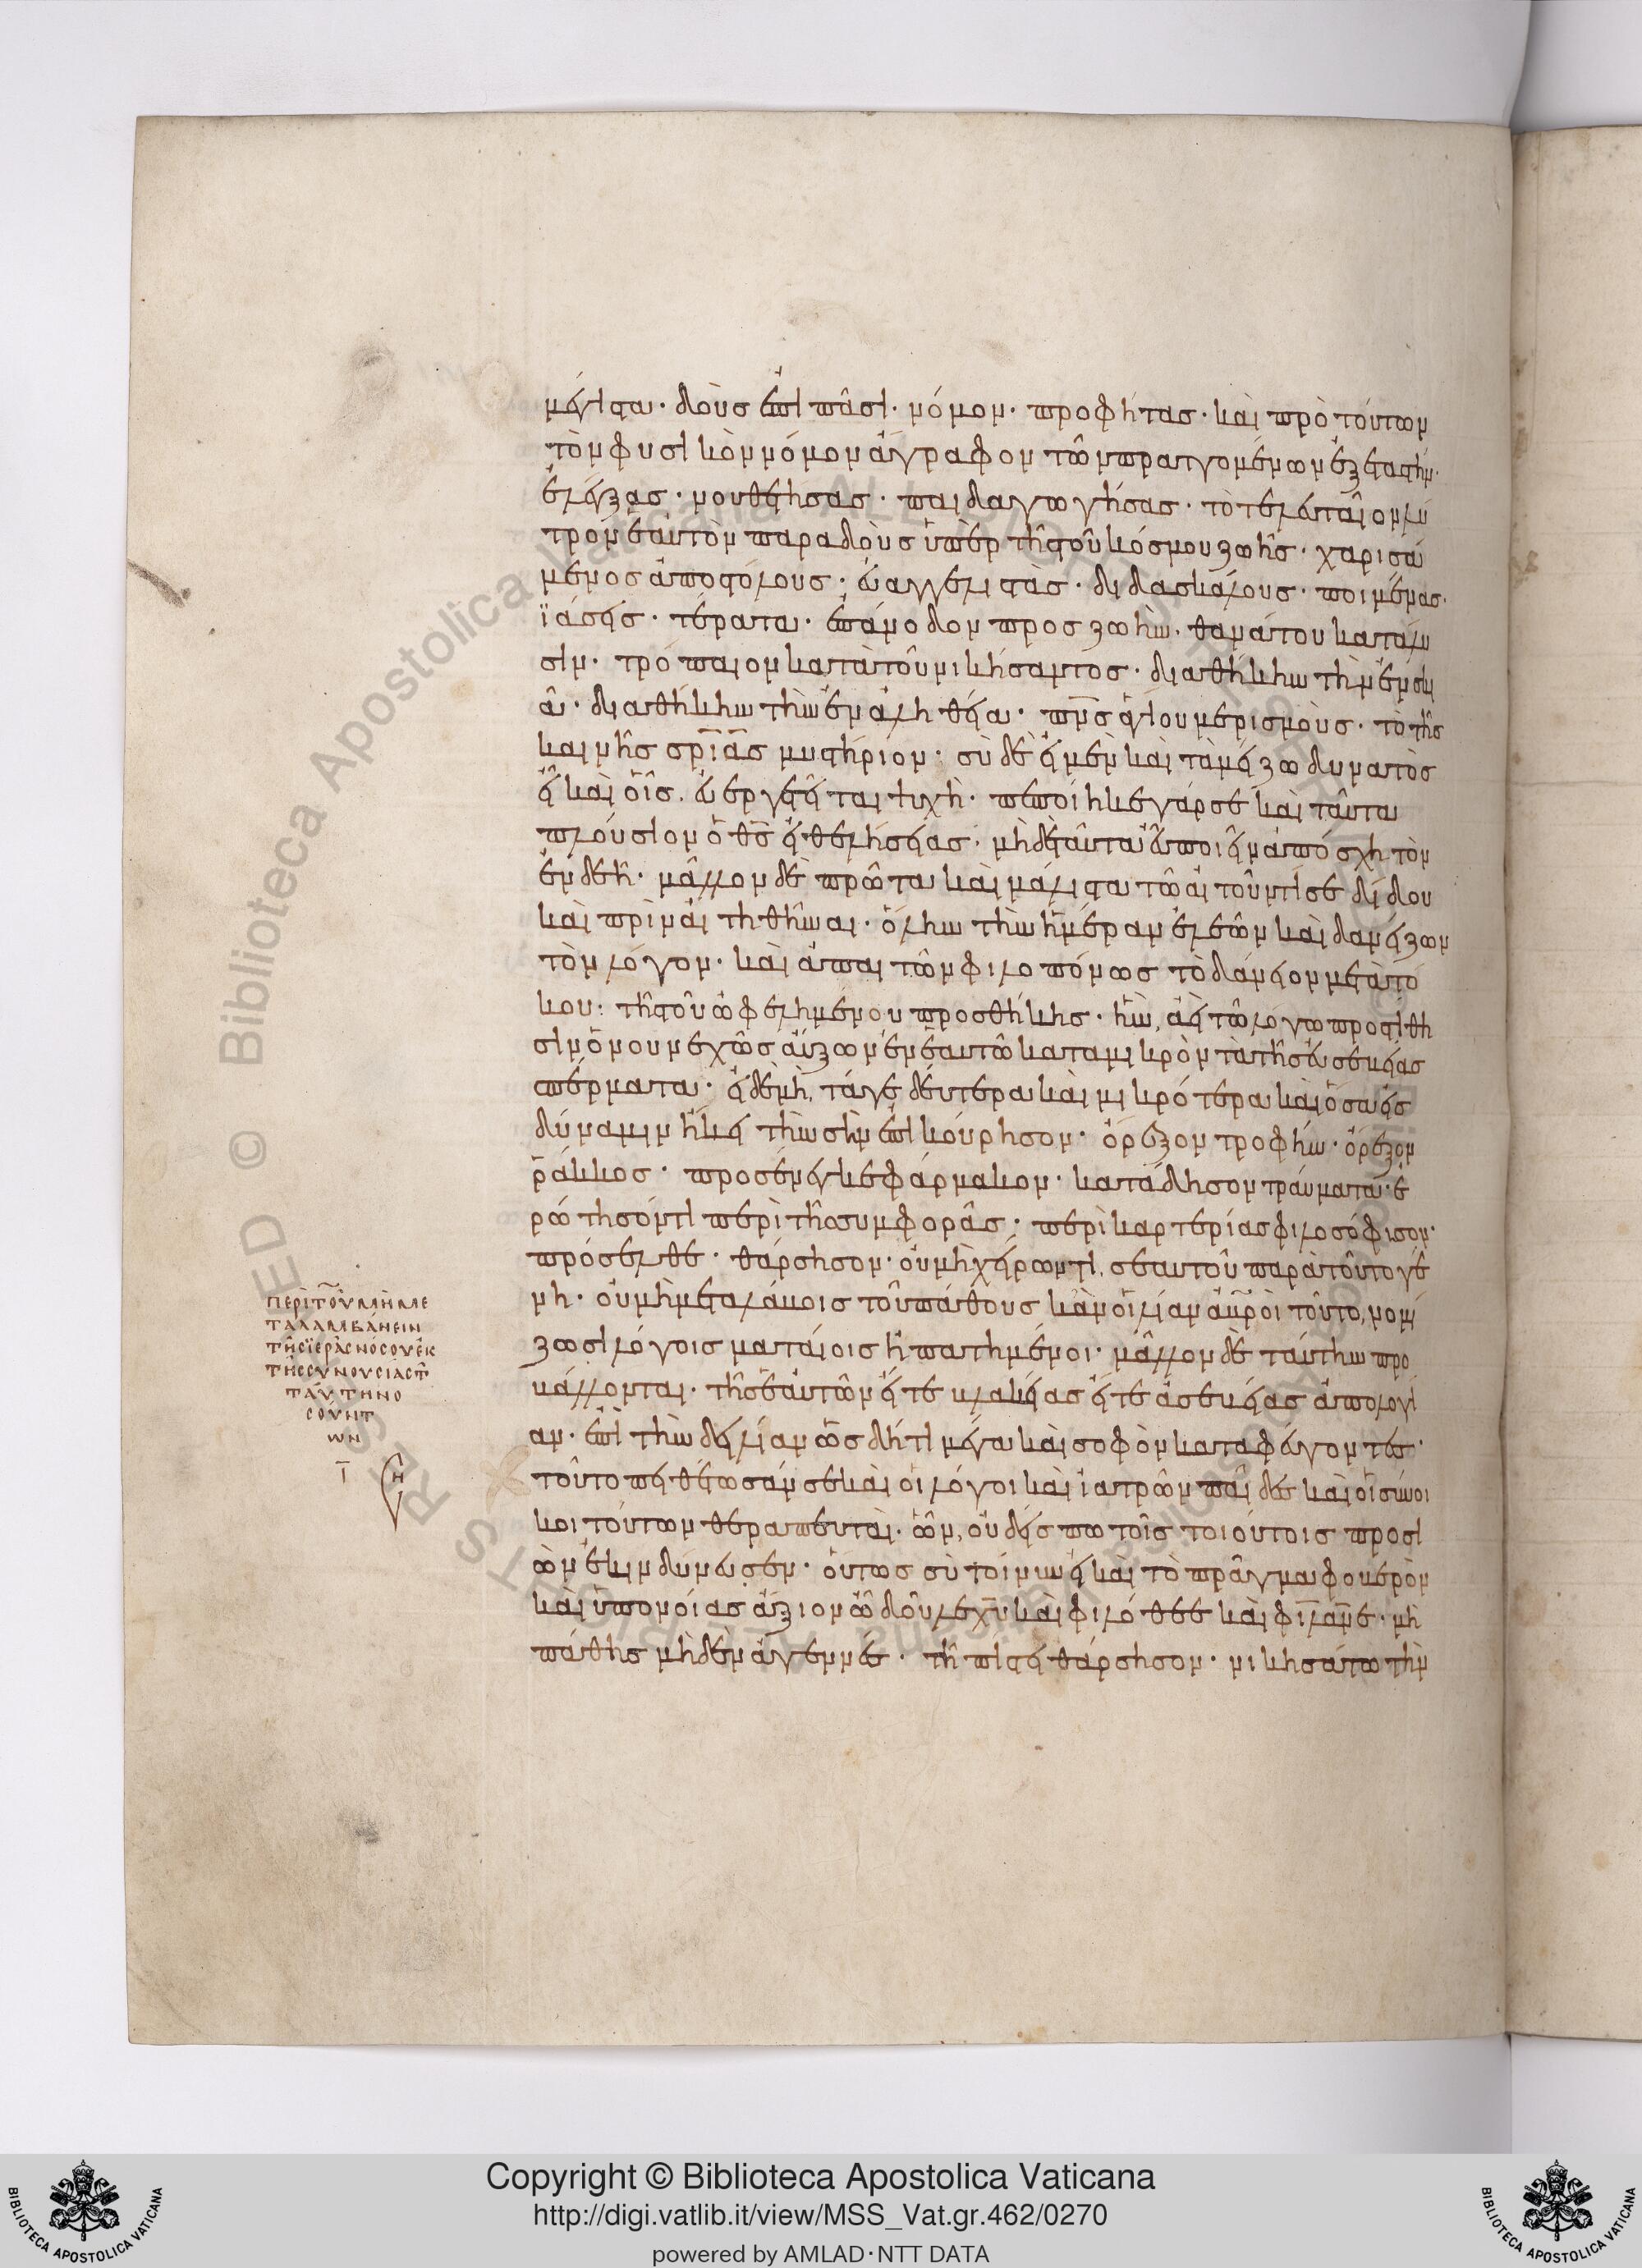 μέγιστα· δοὺς ἐπὶ πᾶσι· νόμον· προφήτας· καὶ πρὸ τούτων
τὸν φυσικὸν νόμον ἄγραφον τῶν πραττομένων ἐξεταστήν·
ἐλέγξας· νουθετήσας· παιδαγωγήσας· τὸ τελευταῖον λύ
τρον ἑαυτὸν παραδοὺς ὑπὲρ τῆς τοῦ κόσμου ζωῆς· χαρισά
μενος ἀποστόλους· εὐαγγελιστὰς· διδασκάλους· ποιμένας·
ϊάσεις· τέρατα· ἐπάνοδον προς ζωὴν· θανάτου κατάλυ
σιν· τρόπαιον κατὰ τοῦ νικήσαντος· διαθήκην τὴν ἐν σκι
ᾶ· διαθήκην τὴν ἐν ἀληθεία· πν̅ς ἁγίου μερισμοὺς· τὸ τῆς
καινῆς σρ̅ίας μυστήριον· σὺ δὲ εἰ μὲν καὶ τὰ μείζω δυνατὸς
εἶ καὶ οἷς εὐεργετεῖται ψυχὴ· πεποίηκε γάρ σε καὶ ταῦτα
πλούσιον ὁ θς̅ εἰ θελήσειας· μὴ δὲ ταῦτα εὖ ποιεῖν ἀπόσχη τὸν
ἐνδεῆ· μᾶλλον δὲ πρῶτα καὶ μάλιστα τῶ αἰτοῦντί σε δίδου
καὶ πρὶν αἰτηθῆναι· ὅλην τὴν ἡμέραν ἐλεῶν καὶ δανείζων
τὸν λόγον· καὶ ἀπαιτῶν φιλοπόνως τὸ δάνειον μετὰ τό
κου· τῆς τοῦ ὠφελημένου προσθήκης· ἣν, ἀεὶ τῶ λόγω προστίθη
σιν ὁ νουνεχῶς αὔξων ἐν ἑαυτῶ κατα μικρὸν τὰ τῆς εὐσεβείας
σπέρματα· εἰ δὲ μὴ, τά γε δεύτερα καὶ μικρότερα καὶ ὅσα εἰς
δύναμιν ἥκει τὴν σὴν ἐπικούρησον· ὄρεξον τροφήν· ὄρεξον
ῥάκκος· προσένεγκε φάρμακον· κατάδησον τραύματα· ἐ
ρώτησόν τι περὶ τῆς συμφορᾶς· περὶ καρτερίας φιλοσόφησον·
πρόσελθε· θάρσησον· οὐ μὴ χείρων τι σεαυτοῦ παρὰ τοῦτο γέ
νη· οὐ μὴ μεταλάβοις τοῦ πάθους κἂν οἱ λίαν ἁβροὶ τοῦτο, νομί
ζωσι λόγοις ματαίοις ἠπατημένοι· μᾶλλον δὲ ταύτην προ
βάλλονται· τῆς ἑαυτῶν εἴτε βλακείας εἴτε ἀσεβείας ἀπολογί
αν· ἐπὶ τὴν δειλίαν ὥς δή τι μέγα καὶ σοφὸν καταφεύγοντες·
τοῦτο πειθέτωσάν σε καὶ οἱ λόγοι καὶ ἰατρῶν παῖδες καὶ οἱ σύνοι
κοι τούτων θεραπευταὶ· ὧν, οὐδείς πω τοῖς τοιούτοις προσι
ὼν ἐκινδύνευσεν· οὕτως σὺ τοίνυν εἰ καὶ τὸ πρᾶγμα φοβερὸν
καὶ ὑπονοίας ἄξιον ὦ δοῦλε χυ̅ καὶ φιλόθεε καὶ φιλάν̅ε· μὴ
πάθης μηδὲν ἀγεννές· τῆ πίστει θάρσησον· νικησάτω τὴν
ΠΕΡΙ ΤΟΥ ΜΗ ΜΕ
ΤΑΛΑΜΒΑΝΕΙΝ
ΤΗΣ ΪΕΡΑΣ ΝΟΣΟΥ ΕΚ
ΤΗΣ ΣΥΝΟΥΣΙΑΣ Τ̅
ΤΑΥΤΗ ΝΟ
ΣΟΥΝΤ
ΩΝ
Copyright © Biblioteca Apostolica Vaticana
http://digi.vatlib.it/view/MSS_Vat.gr.462/0270
powered by AMLAD·NTT DATA
BIBLIOTECA APOSTOLICA VATICANA
BIBLIOTECA APOSTOLICA VATICANA